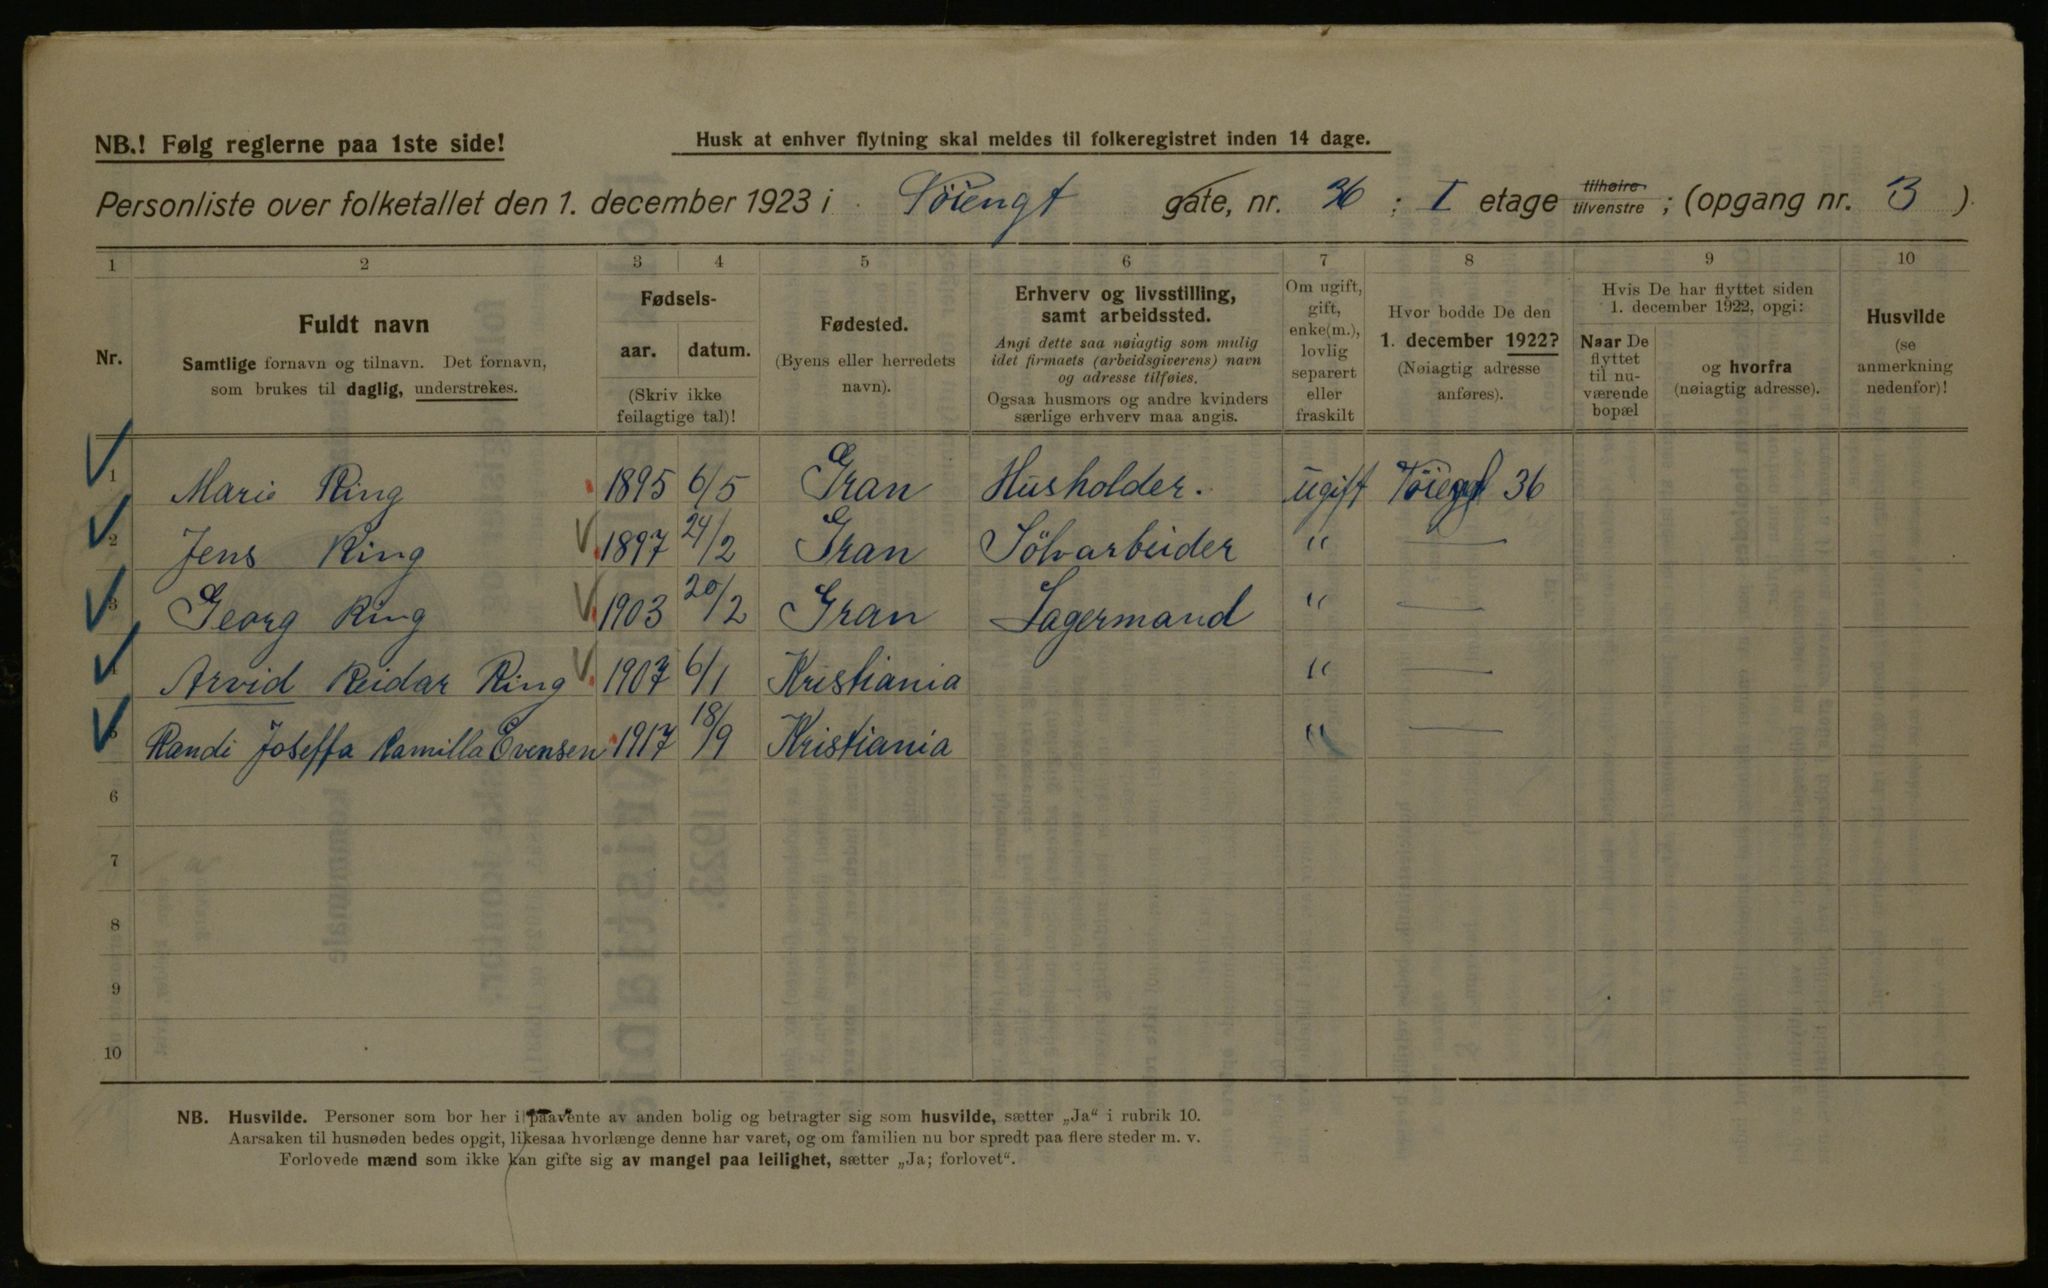 NB.! Følg reglerne paa 1ste side!
Husk at enhver flytning skal meldes til folkeregistret inden 14 dage.
Personliste over folketallet den 1. december 1923 i Töiengt gate, nr. 36 ; I etage tilhøire tilvenstre ; (opgang nr. B )
1 2 3 4 5 6 7 8 9 10
Nr.
Fuldt navn
Samtlige fornavn og tilnavn. Det fornavn,
som brukes til daglig, understrekes.
Fødsels-
aar. datum.
(Skriv ikke
feilagtige tal)!
Fødested.
(Byens eller herredets
navn).
Erhverv og livsstilling,
samt arbeidssted.
Angi dette saa nøiagtig som mulig
idet firmaets (arbeidsgiverens) navn
og adresse tilføies.
Ogsaa husmors og andre kvinders
særlige erhverv maa angis.
Om ugift,
gift,
enke(m.),
lovlig
separert
eller
fraskilt
Hvor bodde De den
1. december 1922?
(Nøiagtig adresse
anføres).
Hvis De har flyttet siden
1. december 1922, opgi:
Naar De
flyttet
til nu-
værende
bopæl
og hvorfra
(nøiagtig adresse).
Husvilde
(se
anmerkning
nedenfor)!
1 Marie Ring 1895 6/5 Gran Husholder. ugift Töiengt 36
2 Jens Ring 1897 24/2 Gran Sölvarbeider " —
3 Georg Ring 1903 20/2 Gran Lagermand " —
4 Arvid Reidar Ring 1907 6/1 Kristiania " —
5 Randi Joseffa Kamilla Evensen 1917 18/9 Kristiania " —
6
7
8
9
10
NB. Husvilde. Personer som bor her i paavente av anden bolig og betragter sig som husvilde, sætter „Ja“ i rubrik 10.
Aarsaken til husnøden bedes opgit, likesaa hvorlænge denne har varet, og om familien nu bor spredt paa flere steder m. v.
Forlovede mænd som ikke kan gifte sig av mangel paa leilighet, sætter „Ja; forlovet“.